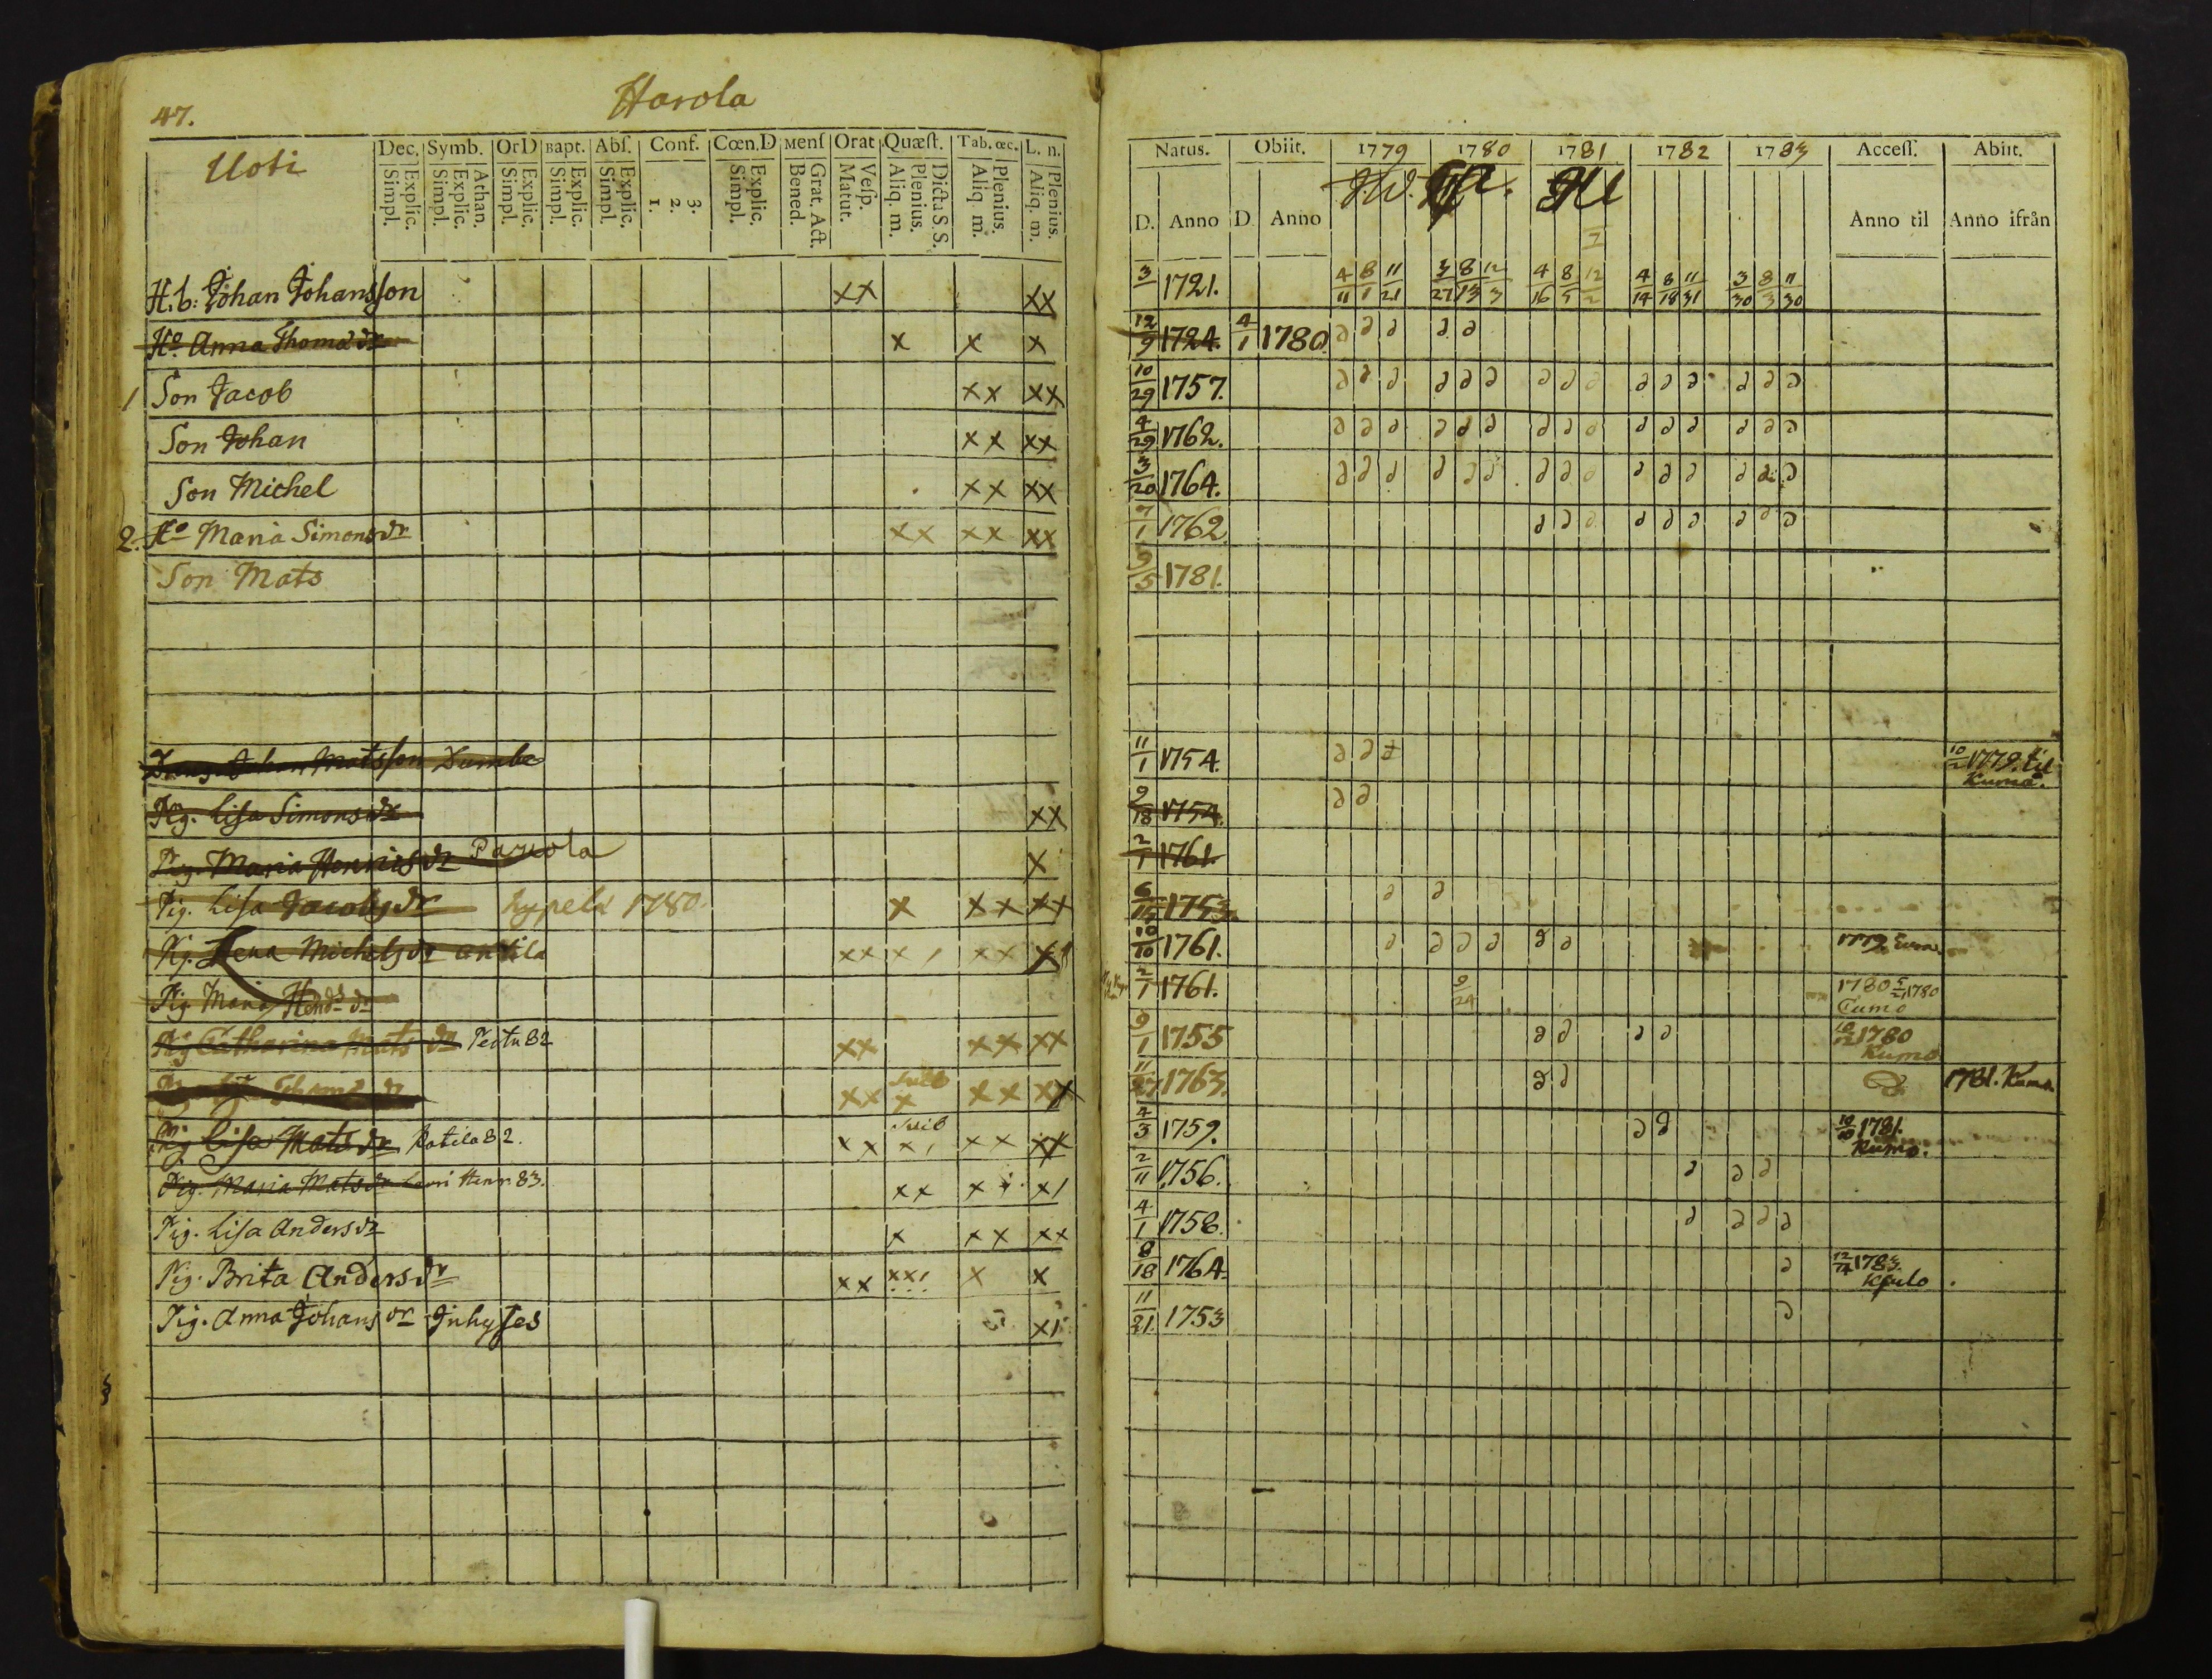 47.
Harola
Uoti
Dec. Symb. OrD Bapt. Abſ. Conf. Cœn.D Menſ Orat Quæſt. Tab.œc. L. n.
Explic. Simpl. Athan. Explic. Simpl. Explic. Simpl. Explic. Simpl. Explic. Simpl. 1. 2. 3. Explic. Simpl. Grat. Act. Bened. Veſp. Matut. Dicta S.S. Plenius. Aliq. m. Plenius. Aliq m. Plenius. Aliq. m.
H.b: Johan Johansson xx xx
Ho Anna Thomædr x x x
1 Son Jacob xx xx
Son Johan xx xx
Son Michel xx xx
2. Ho Maria Simonsdr xx xx xx
Son Mats
Dreng. Johan Matsson Dumbe
Pig. Lisa Simonsdr xx
Pig. Maria Henricsdr Parvola x
Pig. Lisa Jacobsdr Hypelä 1780. x xx xx
Pig. Lena Michelsdr Antila xx x/ xx x/
Pig Maria Hendr dr
Pig Catharina Mats dr Tectu 82 xx xx xx
Thomæ dr xx x xx xx
Pig Lisa Mats dr Katila 82. xx x/ xx xx
Pig. Maria Matsdr Lauri Henr 83. xx x x/
Pig. Lisa Andersdr x xx xx
Pig. Brita Andersdr xx xx/ x x
Pig. Anna Johansdr Inhyses x/
Natus. Obiit. 1779 1780 1781 1782 1783 Acceſſ. Abiit.
D. Anno D Anno Anno til Anno ifrån
3 1721. 4/11 8/1 11/21 3/27 8/13 12/3 4/16 8/5 12/2 4/14 8/18 11/31 3/30 8/3 11/30
12/9 1724. 4/1 1780. ∂ ∂ ∂ ∂ ∂
10/29 1757. ∂ ∂ ∂ ∂ ∂ ∂ ∂ ∂ ∂ ∂ ∂ ∂ ∂ ∂ ∂
4/29 1762. ∂ ∂ ∂ ∂ ∂ ∂ ∂ ∂ ∂ ∂ ∂ ∂ ∂ ∂ ∂
3/20 1764. ∂ ∂ ∂ ∂ ∂ ∂ ∂ ∂ ∂ ∂ ∂ ∂ ∂ ∂ ∂
7/1 1762 ∂ ∂ ∂ ∂ ∂ ∂ ∂ ∂ ∂
9/5 1781.
11/1 1754. ∂ ∂ ∂ 10/2 1779. til
Kumo.
9/18 1754. ∂ ∂
2/1 1761.
6/15 1753. ∂ ∂
10/10 1761. ∂ ∂ ∂ ∂ ∂ ∂ 1779 Eura
2/1 1761. 9/24 1780 1780
Cumo
9/1 1755 ∂ ∂ ∂ ∂ 1780
Kumo
11/27 1763. ∂ ∂ 1781. Kumo
4/3 1759. ∂ ∂ 10/10 1781.
Kumo.
2/11 1756. ∂ ∂ ∂
4/1 1758. ∂ ∂ ∂ ∂
8/18 1764. ∂ 12/14 1783.
Kjulo
11/21 1753 ∂